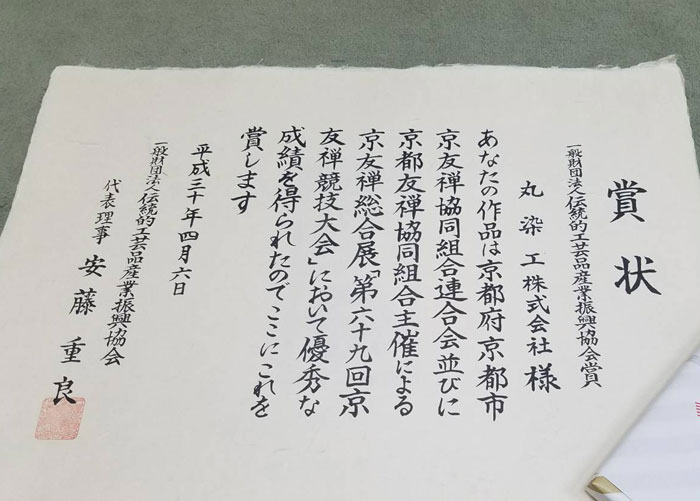 賞状
一般財団法人伝統的工芸品産業振興協会賞
丸染工株式会社様
あなたの作品は京都府京都市
京友禅協同組合連合会並びに
京都友禅協同組合主催による
京友禅総合展「第六十九回京
友禅競技大会」において優秀な
成績を得られたのでここにこれを
賞します
平成三十年四月六日
一般財団法人伝統的工芸品産業振興協会
代表理事 安藤重良